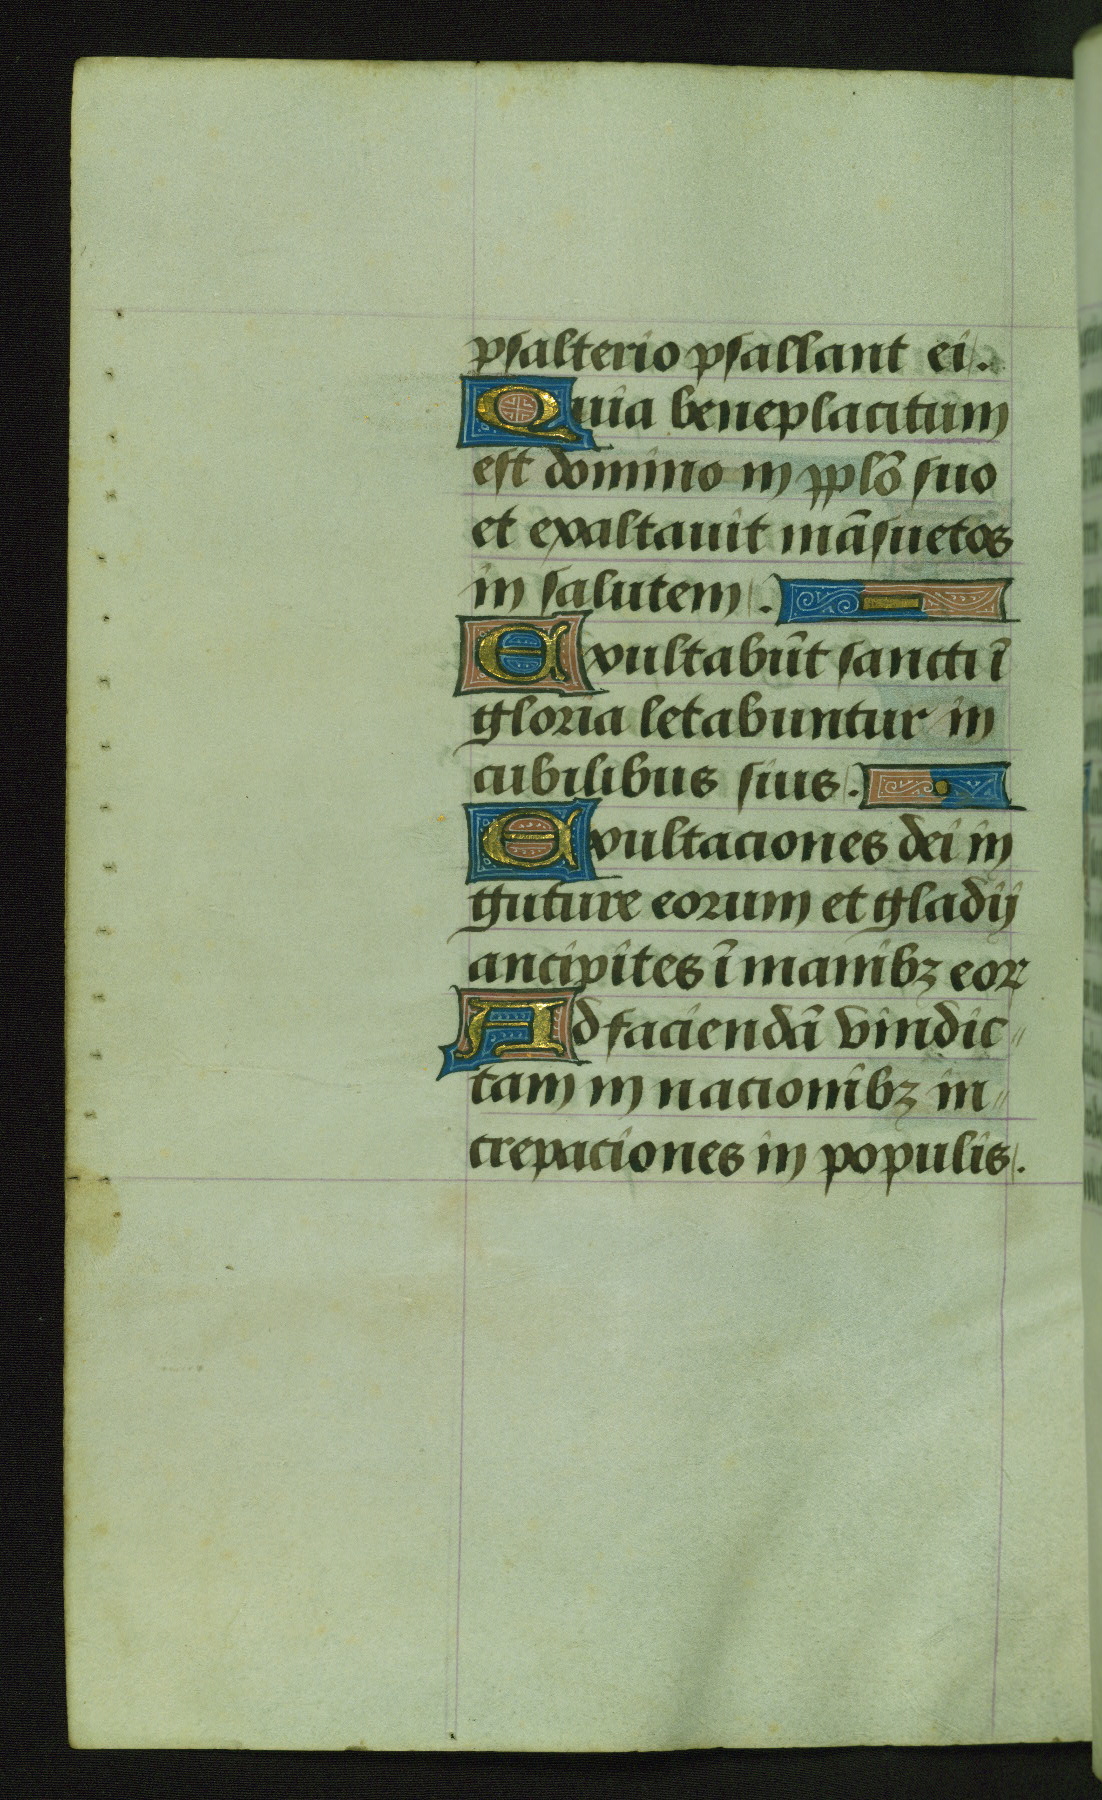 psalterio psallant ei.
Quia beneplacitum
est domino in pplō suo
et exaltauit māsuetos
in salutem.
Exultabūt sancti ī
gloria letabuntur in
cubilibus siuis.
Exultaciones dei in
guture eorum et gladij
ancipites ī manibꝫ eoꝝ
Ad faciendā vindic〃
tam in nacionibꝫ in〃
crepaciones in populis.